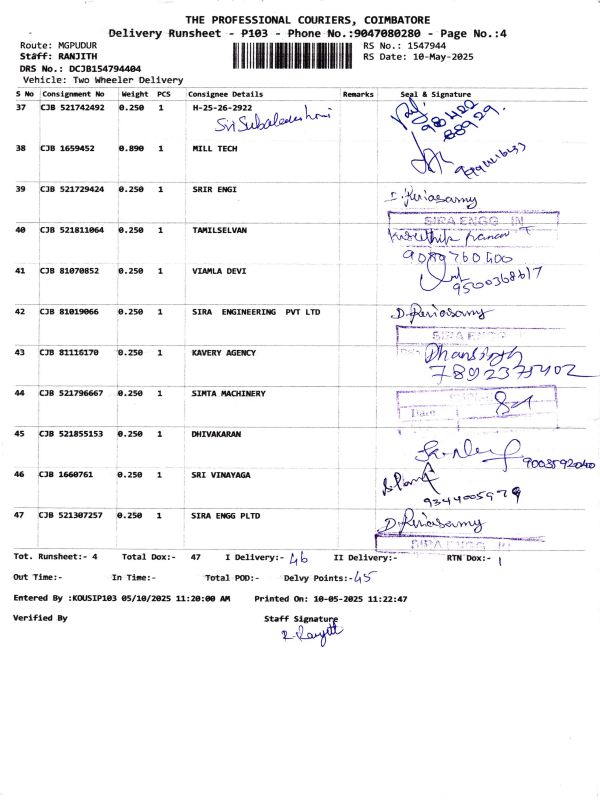 THE PROFESSIONAL COURIERS, COIMBATORE
Delivery Runsheet - P103 - Phone No.:9047080280 - Page No.:4
Route: MGPUDUR RS No.: 1547944
Staff: RANJITH RS Date: 10-May-2025
DRS No.: DCJB154794404
Vehicle: Two Wheeler Delivery
S No Consignment No Weight PCS Consignee Details Remarks Seal & Signature
37 CJB 521742492 0.250 1 H-25-26-2922
98422
88929
38 CJB 1659452 0.890 1 MILL TECH
39 CJB 521729424 0.250 1 SRIR ENGI
SIRA ENGG IN
40 CJB 521811064 0.250 1 TAMILSELVAN
41 CJB 81070852 0.250 1 VIAMLA DEVI
9500368617
42 CJB 81019066 0.250 1 SIRA ENGINEERING PVT LTD D. Periasamy
SIRA ENGG
43 CJB 81116170 0.250 1 KAVERY AGENCY
44 CJB 521796667 0.250 1 SIMTA MACHINERY
Date
45 CJB 521855153 0.250 1 DHIVAKARAN
46 CJB 1660761 0.250 1 SRI VINAYAGA
9344005979
47 CJB 521307257 0.250 1 SIRA ENGG PLTD D. Periasamy
SIRA ENGG IN
Tot. Runsheet:- 4 Total Dox:- 47 I Delivery:- 46 II Delivery:- RTN Dox:- 1
Out Time:- In Time:- Total POD:- Delvy Points:- 45
Entered By :KOUSIP103 05/10/2025 11:20:00 AM Printed On: 10-05-2025 11:22:47
Verified By Staff Signature